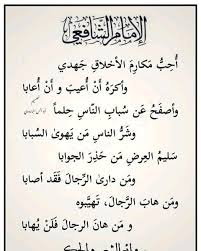 الإمام الشافعي
أُحِبُّ مَكارِمَ الأَخلاقِ جَهدي
وأَكرَهُ أَنْ أَعيبَ وَ أَنْ أُعابا
وأَصفَحُ عَن سُبابِ النّاسِ حِلماً
وشَرُّ الناسِ مَن يَهوىٰ السُّبابا
سَليمُ العِرضِ مَن حَذِرَ الجوابا
ومَن دارىٰ الرِّجالَ فَقَد أصابا
ومَن هابَ الرِّجالَ، تَهَيَّبوه
و مَن هانَ الرِجالَ فلَنْ يُهابا